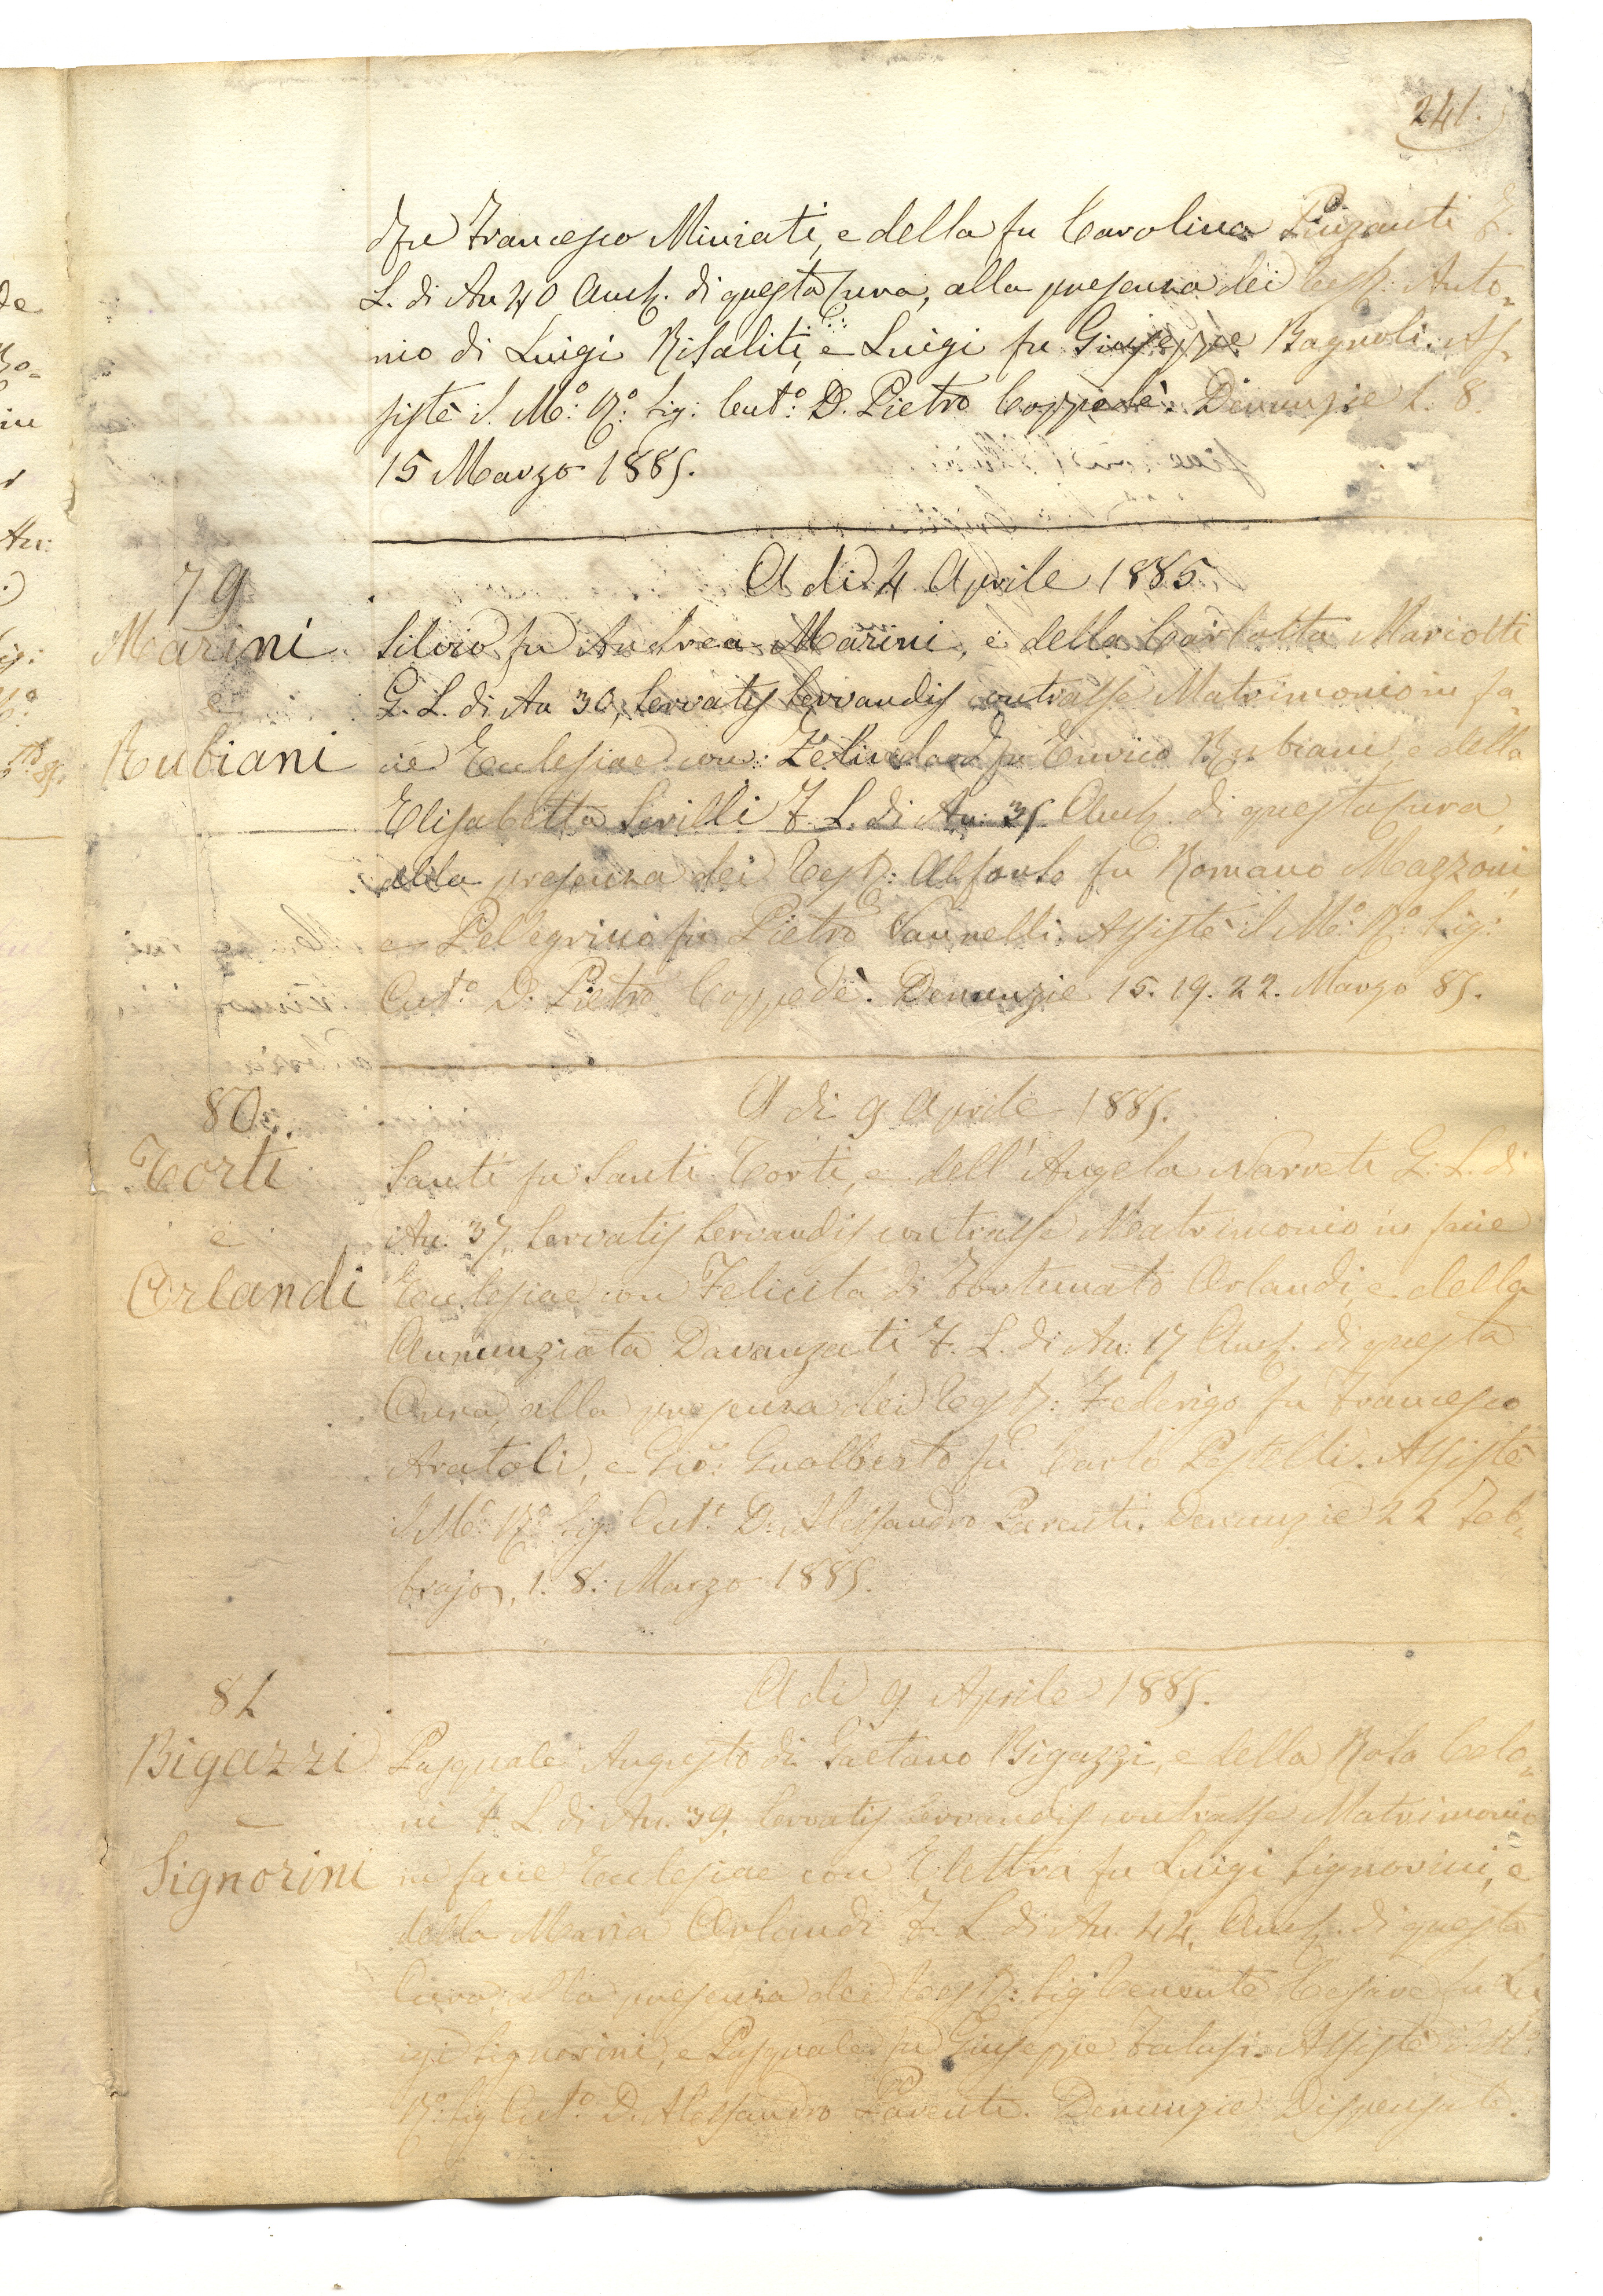 241.
fu Francesco Miniati, e della fu Carolina Pinzauti F.
L. di An 40 Amb. di questa Cura, alla presenza dei Test: Anto=
nio di Luigi Risaliti, e Luigi fu Giuseppe Bagnoli. As=
sistè il M.º R.º Sig: Cut.º D. Pietro Coppedè. Denunzie 1. 8.
15 Marzo 1885.
A di 4 Aprile 1885
79
Marini
e
Rubiani
Silvio fu Andrea Marini, e della Carlotta Mariotti
G. L. di An 30, Servatis Servandis contrasse Matrimonio in fa=
cie Ecclesiae con: Zelinda fu Enrico Rubiani, e della
Elisabetta Serilli F. L. di An: 35 Amb. di questa Cura,
alla presenza dei Test: Alfonso fu Romano Mazzoni,
e Pellegrino fu Pietro Vannelli. Assistè il M.º R.º Sig:
Cut.º D. Pietro Coppedè. Denunzie 15. 19. 22. Marzo 85.
A di 9 Aprile 1885.
80
Corti
e
Orlandi
Santi fu Santi Corti, e dell' Angela Narveti G. L. di
An. 37, Servatis Servandis contrasse Matrimonio in facie
Ecclesiae con Felicita di Fortunato Orlandi, e della
Annunziata Davanzati F. L. di An: 17 Amb. di questa
Cura, alla presenza dei Test: Federigo fu Francesco
Aratoli, e Gio: Gualberto fu Carlo Pestelli. Assistè
il M.º R.º Sig: Cut.º D. Alessandro Parenti. Denunzie 22 Feb=
brajo, 1. 8. Marzo 1885.
A di 9 Aprile 1885.
81
Bigazzi
e
Signorini
Pasquale Augusto di Gaetano Bigazzi, e della Rosa Celo=
ni F. L di An. 39, Servatis Servandis contrasse Matrimonio
in facie Ecclesiae con Elettra fu Luigi Signorini, e
della Maria Orlandi F. L di An. 44, Amb. di questa
Cura, alla presenza dei Test: Sig Tenente Cesare fu Lu
igi Signorini, e Pasquale fu Giuseppe Falusi. Assistè il M.º
R.º Sig Cut.º D. Alessandro Parenti. Denunzie Dispensate.